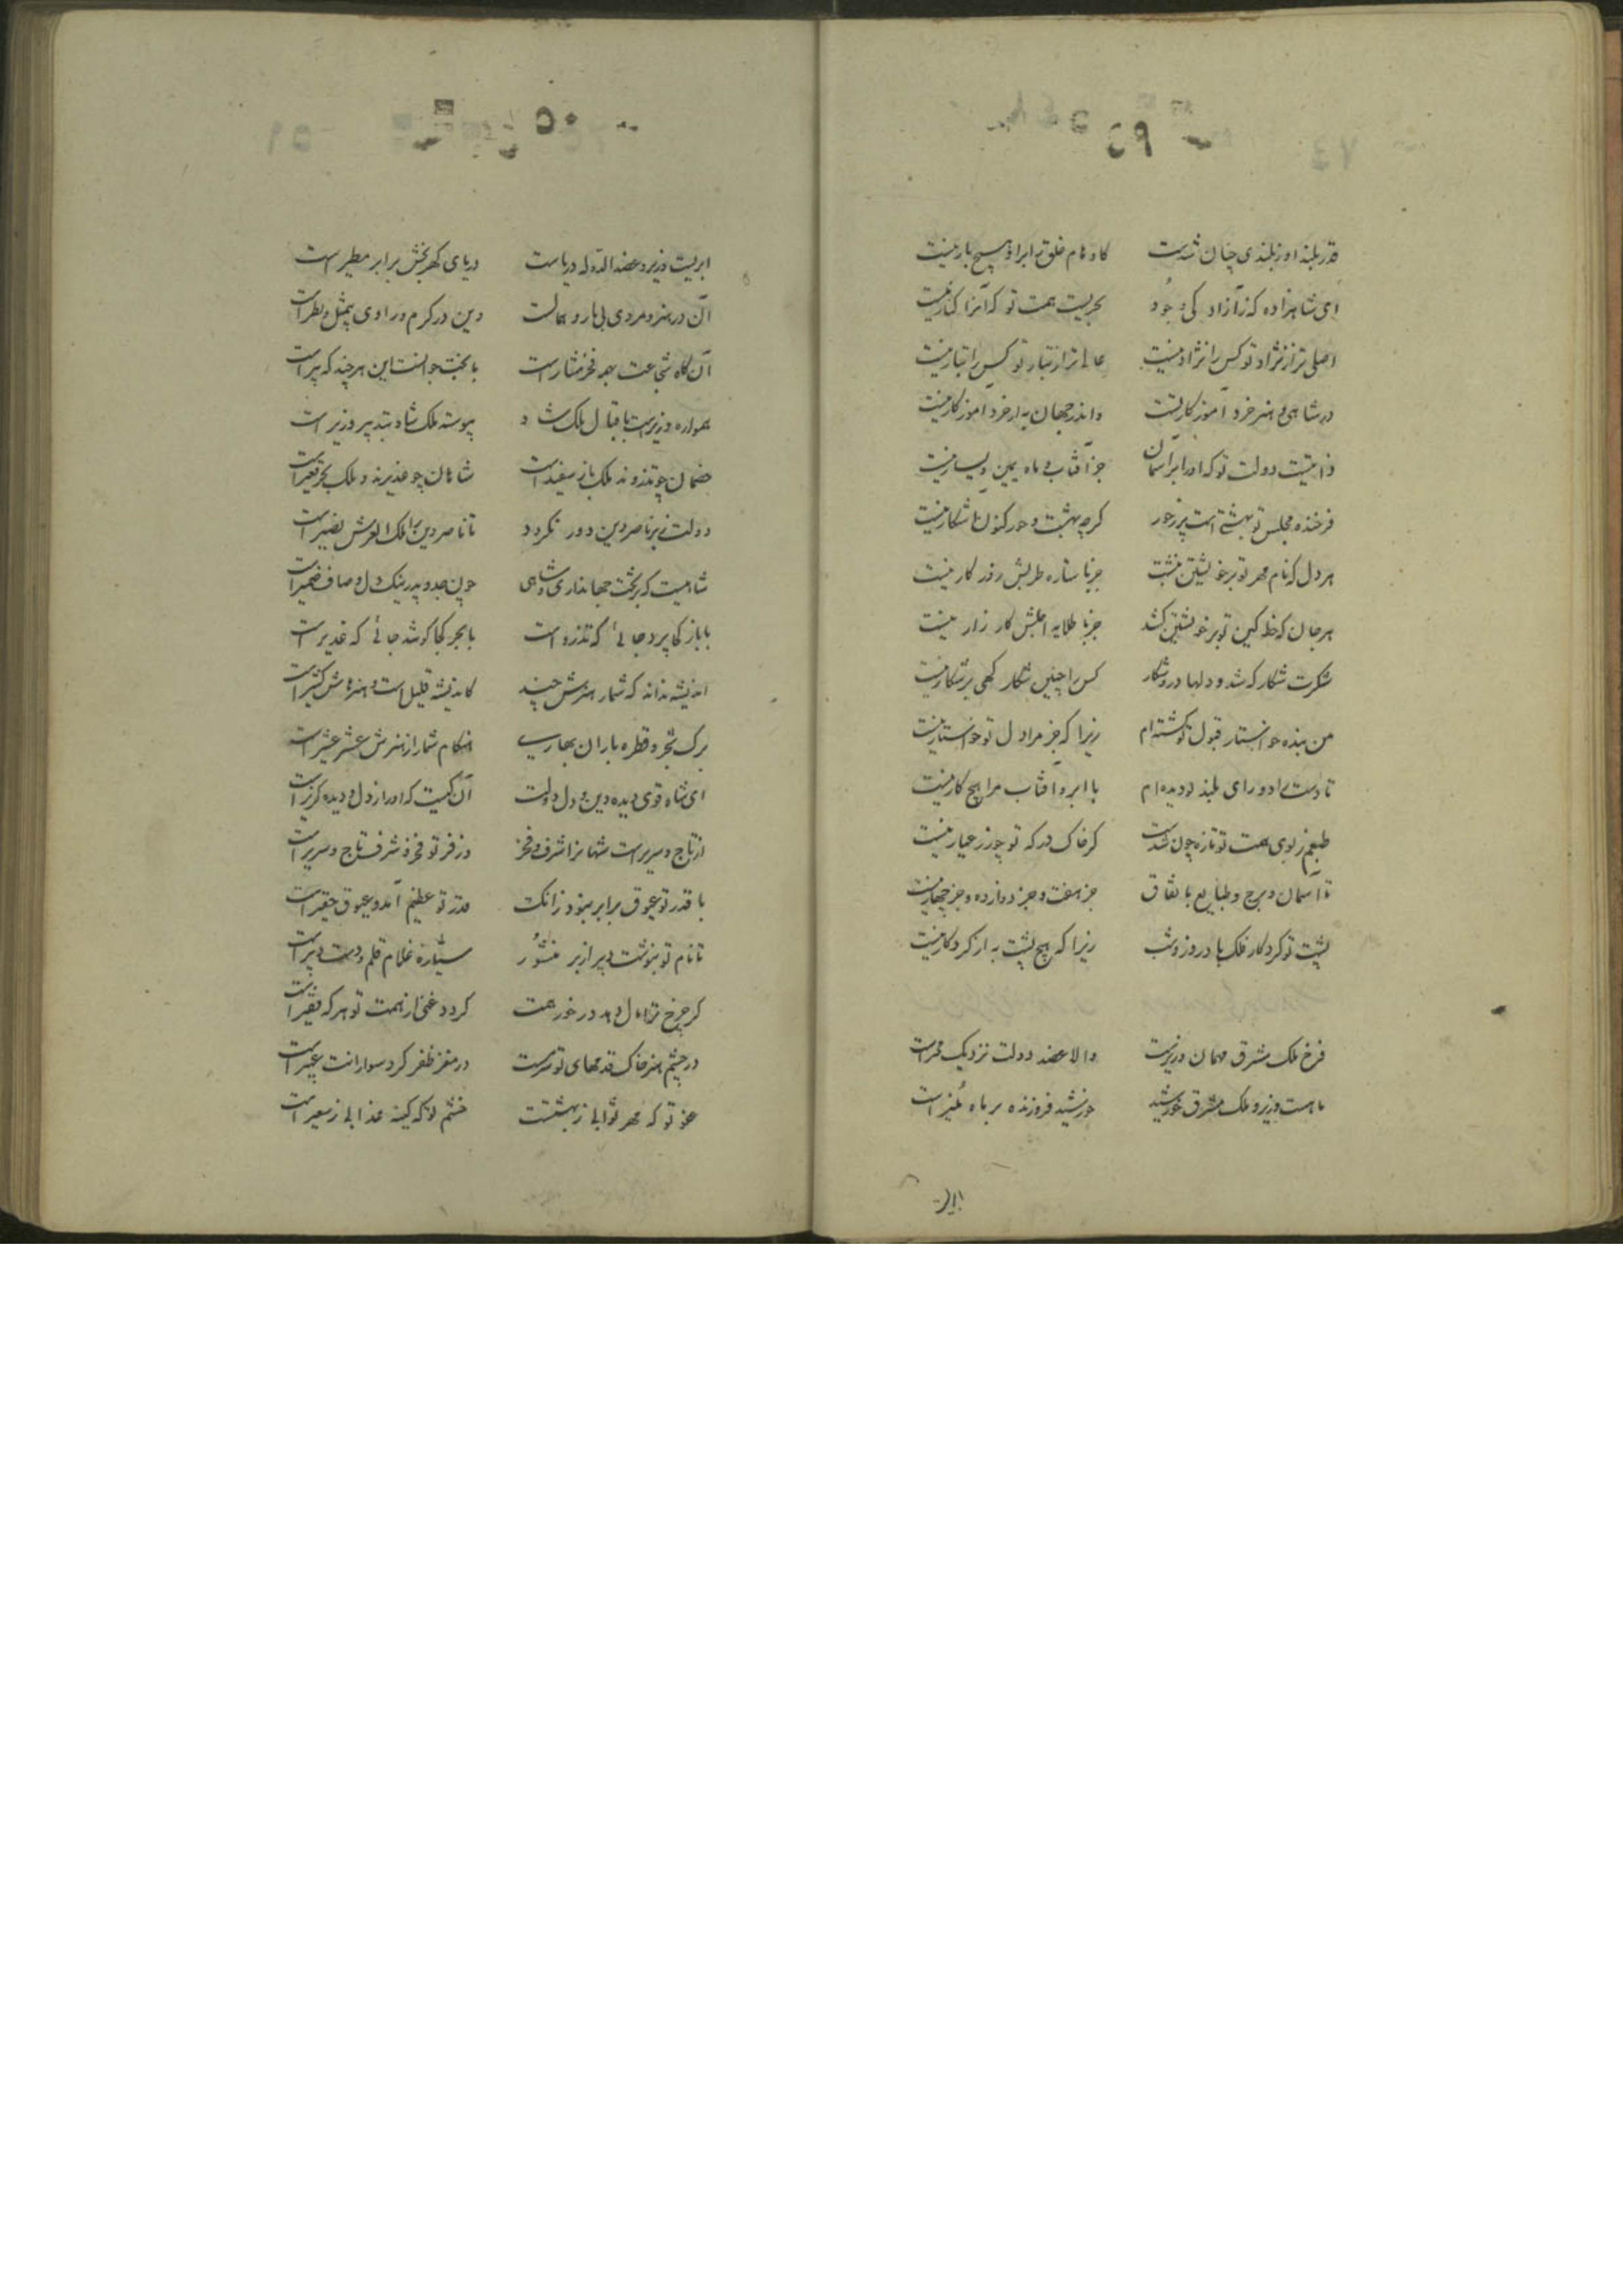 قدر بلند او ز بلندی چنان شدست کاوهام خلق را بر او هیچ بار نیست
ای شاهزاده که ز آزادگی و جود بحریست همت تو که آنرا کنار نیست
اصلی تر از نژاد تو کس را نژاد نیست عالی تر از تبار تو کس را تبار نیست
در شاهی و هنر خرد آموزگار تست واندر جهان به از خرد آموزگار نیست
دولت تو که او را بر آسمان جز آفتاب و ماه یمین و یسار نیست
فرخنده مجلس تو بهشتی است پر ز حور گرچه بهشت و حور کنون آشکار نیست
هر دل که نام مهر تو بر خویشتن نبشت جز با ستاره طربش روزگار نیست
هر جان که خط کین تو بر خویشتن کشد جز با طلایه اجلش کارزار نیست
شکرت شکار که شد و دلها در و شکار کس را چنین شکار گهی پر شکار نیست
من بنده خواستار قبول تو گشته‌ام زیرا که جز مرا دل تو خواستار نیست
تا دست راد و رای بلند تو دیده‌ام با ابر و آفتاب مرا هیچ کار نیست
طبعم ز بوی همت تو تازه چون شدست گر خاک درگه تو چو زر عیار نیست
تا آسمان و برج و طبایع باتفاق جز هفت و جز دوازده و جز چهار نیست
پشت تو کردگار فلک باد روز و شب زیرا که هیچ پشت به از کردگار نیست
فرخ ملک مشرق مهمان وزیرست والا عضد دولت نزدیک مجیرست
ماهست وزیر و ملک مشرق خورشید خورشید فروزنده بر ماه منیر است
ابریست وزیر و عضدالدوله دریاست دریای گهربخش بر ابر مطیر است
آن در هنر و مردی بی یار و همالست وین در کرم و رادی بیمثل و نظیر است
آن گاه شجاعت همه فخر است با بخت جوانست این هر چند که پیر است
همواره وزیرست باقبال ملک شاد پیوسته ملک شاد بتدبیر وزیر است
خصمان چو تذروند ملک باز سفید است شاهان چو غدیرند و ملک بحر قعیر است
دولت ز بر ناصر دین دور نگردد تا ناصر دین را ملک العرش نصیر است
شاهیست که بر تخت جهانداری و شاهی چون جد و پدر نیک دل و صاف ضمیر است
با باز کجا پرد جائی که تذرو است با بحر کجا کوشد جائی که غدیر است
اندیشه نداند که شمار هنرش چند کاندیشه قلیل است و هنرهاش کثیر است
برگ شجر و قطره باران بهاری هنگام شمار از هنرش عشر عشیر است
ای شاه قوی دیده دین و دل دولت آن کیست که او را ز دل و دیده گزیر است
از تاج و سریر است شهانرا شرف و فخر وز فر تو فخر و شرف تاج و سریر است
با قدر تو عیوق برابر نبود زانک قدر تو عظیم آمد و عیوق حقیر است
تا نام تو بنوشت دبیر از بر منشور سیاره غلام قلم و دست دبیر است
گر چرخ ترا مال دهد در خور همت گردد غنی از همت تو هر که فقیر است
در چشم هنر خاک قدمهای تو سرمست در مغز ظفر گرد سوارانت عبیر است
عفو تو که مهر ثوابی ز بهشتست خشم تو که کینه عذابی ز سعیر است